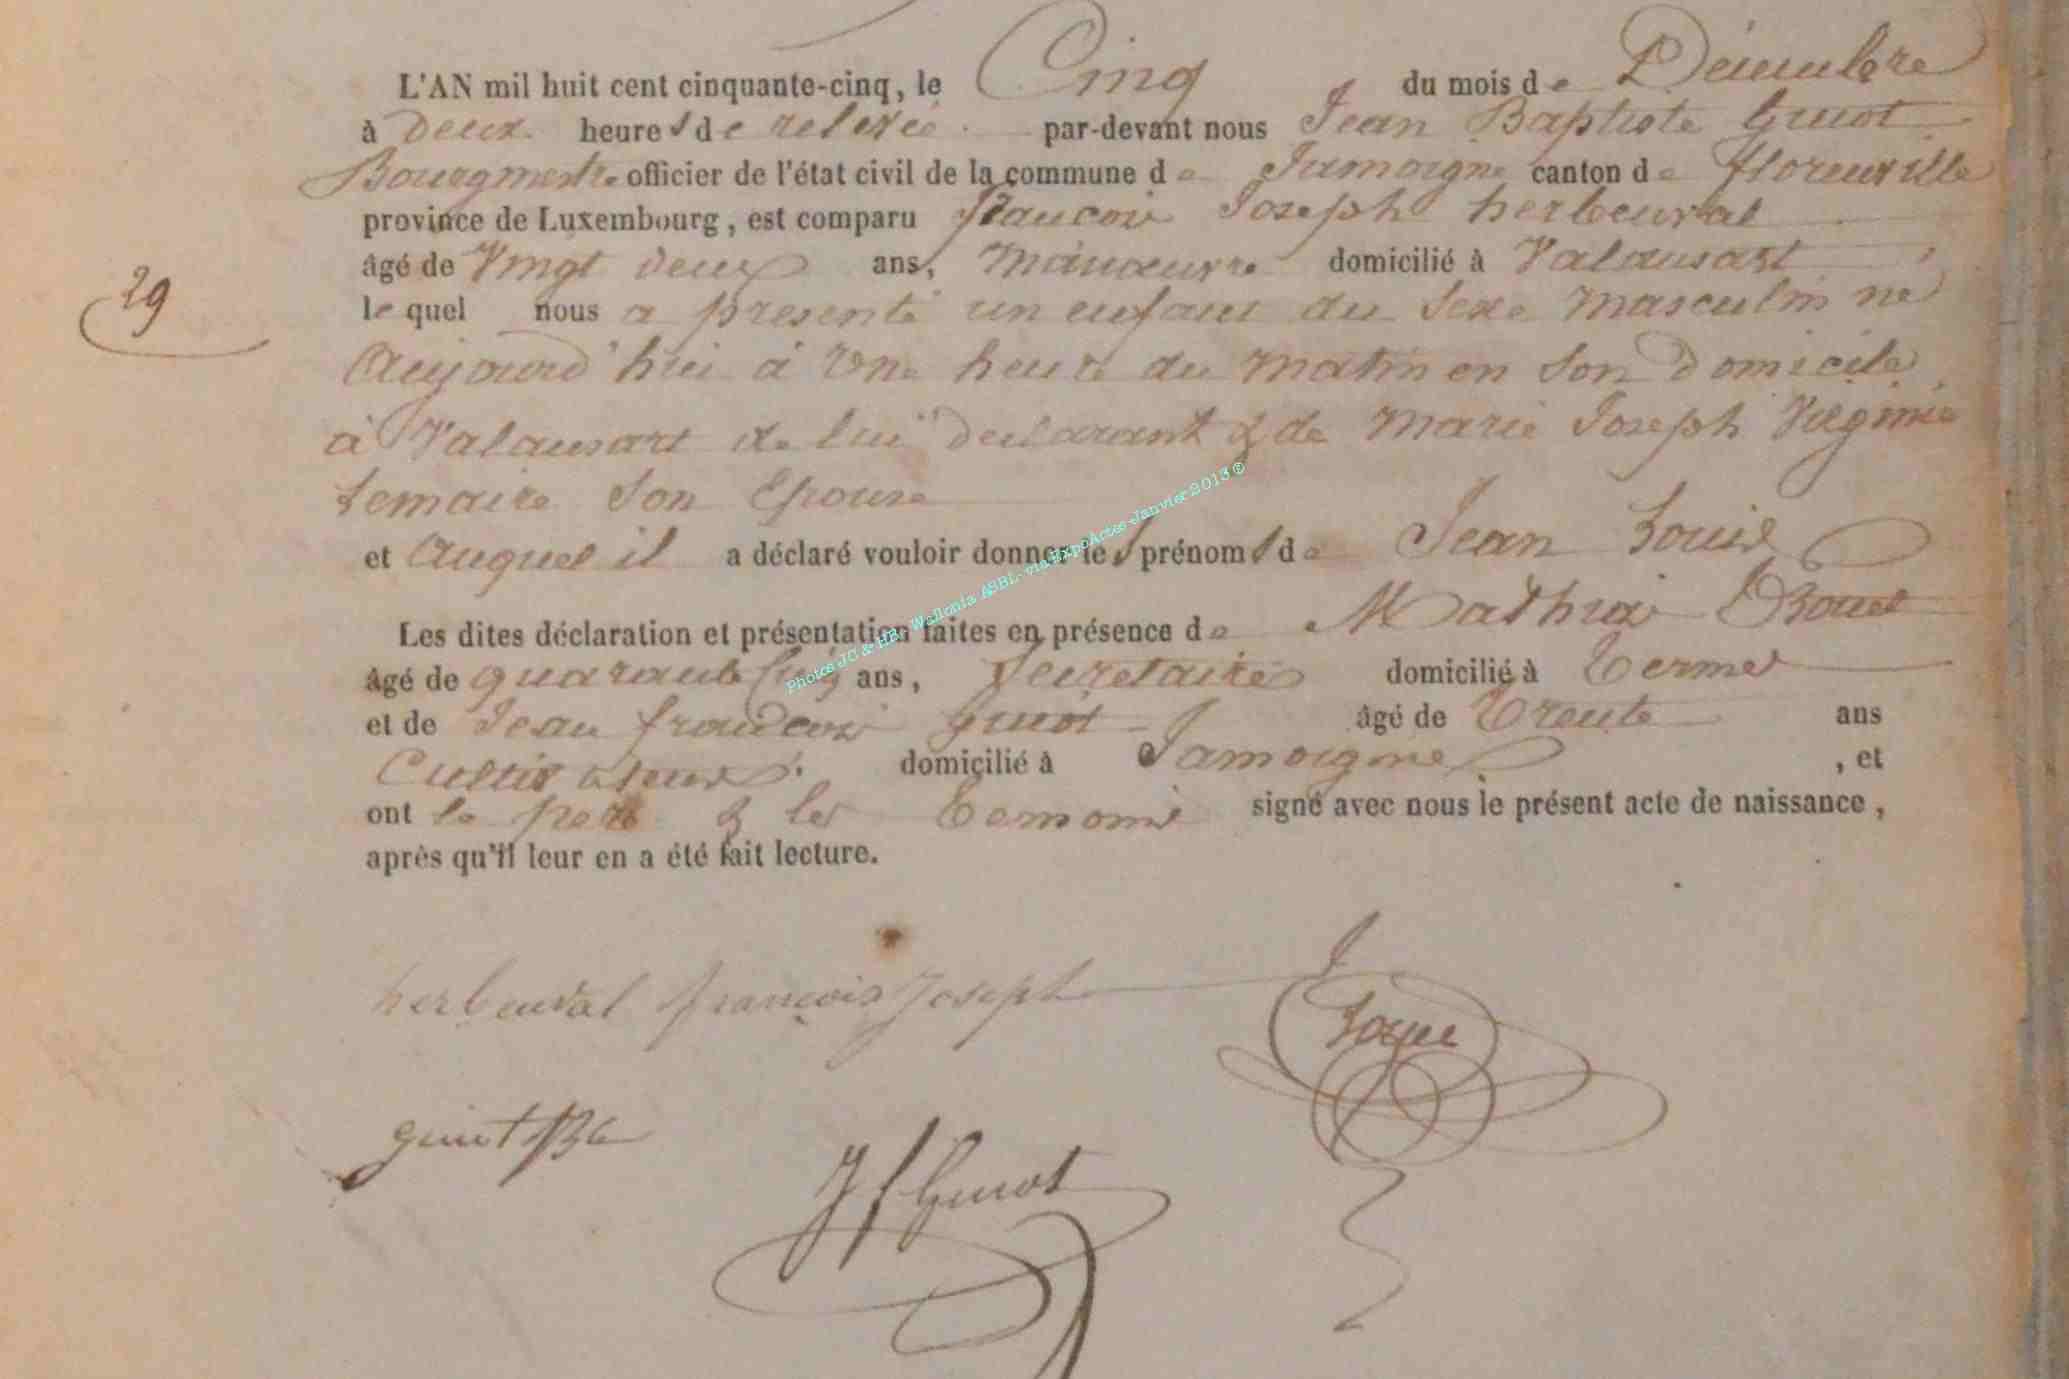 L'AN mil huit cent cinquante-cinq, le Cinq du mois de Décembre
à Deux heures de relevée par-devant nous Jean Baptiste Guiot
Bourgmestre officier de l'état civil de la commune de Jamoigne canton de florenville
province de Luxembourg, est comparu francois Joseph herbeuval
âgé de Vingt deux ans, Manœuvre domicilié à Valansart
29
le quel nous a presenté un enfant du Sexe Masculin né
Aujourd'hui à Une heure du Matin en Son Domicile
à Valansart de lui declarant & de Marie Joseph Virginie
Lemaire Son Epouse
et Auquel il a déclaré vouloir donner les prénoms de Jean Louis
Les dites déclaration et présentation faites en présence de Mathias
âgé de quarante ans, Secretaire domicilié à Termes
et de Jean francois Guiot âgé de Trente ans
Cultivateur domicilié à Jamoigne, et
ont le pere & les Temoins signé avec nous le présent acte de naissance,
après qu'il leur en a été fait lecture.
Photos JC & HB, Wallonia ASBL- via ExpoActes -Janvier 2013 ©
herbeuval françois Joseph
guiot JB
J f Guiot